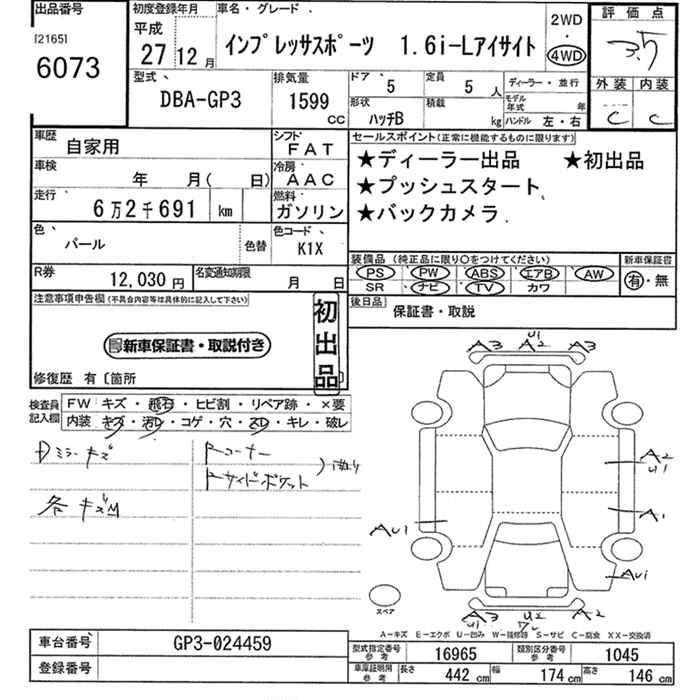 出品番号 初度登録年月 車名・グレード 2WD 評価点
[2165] 6073
平成 27 12月 インプレッサスポーツ 1.6i-Lアイサイト 4WD 3.5
型式 DBA-GP3 排気量 1599 CC
ドア 5 定員 5 人 ディーラー・並行 外装 内装
形状 ハッチB 積載 kg モデル年式 年 ハンドル 左・右 C C
車歴 自家用 シフト FAT
セールスポイント(正常に機能するものに限ります)
車検 年 月( 日) 冷房 AAC
★ディーラー出品 ★初出品
★プッシュスタート
★バックカメラ
走行 6万2千691 km 燃料 ガソリン
色 パール 色替 色コード K1X
装備品(純正品に限り○をつけてください) 新車保証書
PS PW ABS エアB AW 有・無
SR ナビ TV カワ
R券 12,030円 名変通知期限 月 日
後日品 保証書・取説
注意事項申告欄(不具合内容等は具体的に記入して下さい)
初出品
新車保証書・取説付き
修復歴 有〔箇所
検査員記入欄 FW キズ・飛石・ヒビ割・リペア跡・×要
内装 キズ・汚レ・コゲ・穴・スレ・キレ・破レ
Dミラーキズ
各キズM
Rコーナー
Rサイドポケット
A3 U1 A2 A3
A2 U1
A1
AU1
AU1
A3 U1 U2 A2
スペア
A-キズ E-エクボ U-凹み W-補修跡 S-サビ C-腐食 XX-交換済
車台番号 GP3-024459
型式指定番号 参考 16965 類別区分番号 参考 1045
登録番号
車庫証明用 参考 長さ 442 cm 幅 174 cm 高さ 146 cm